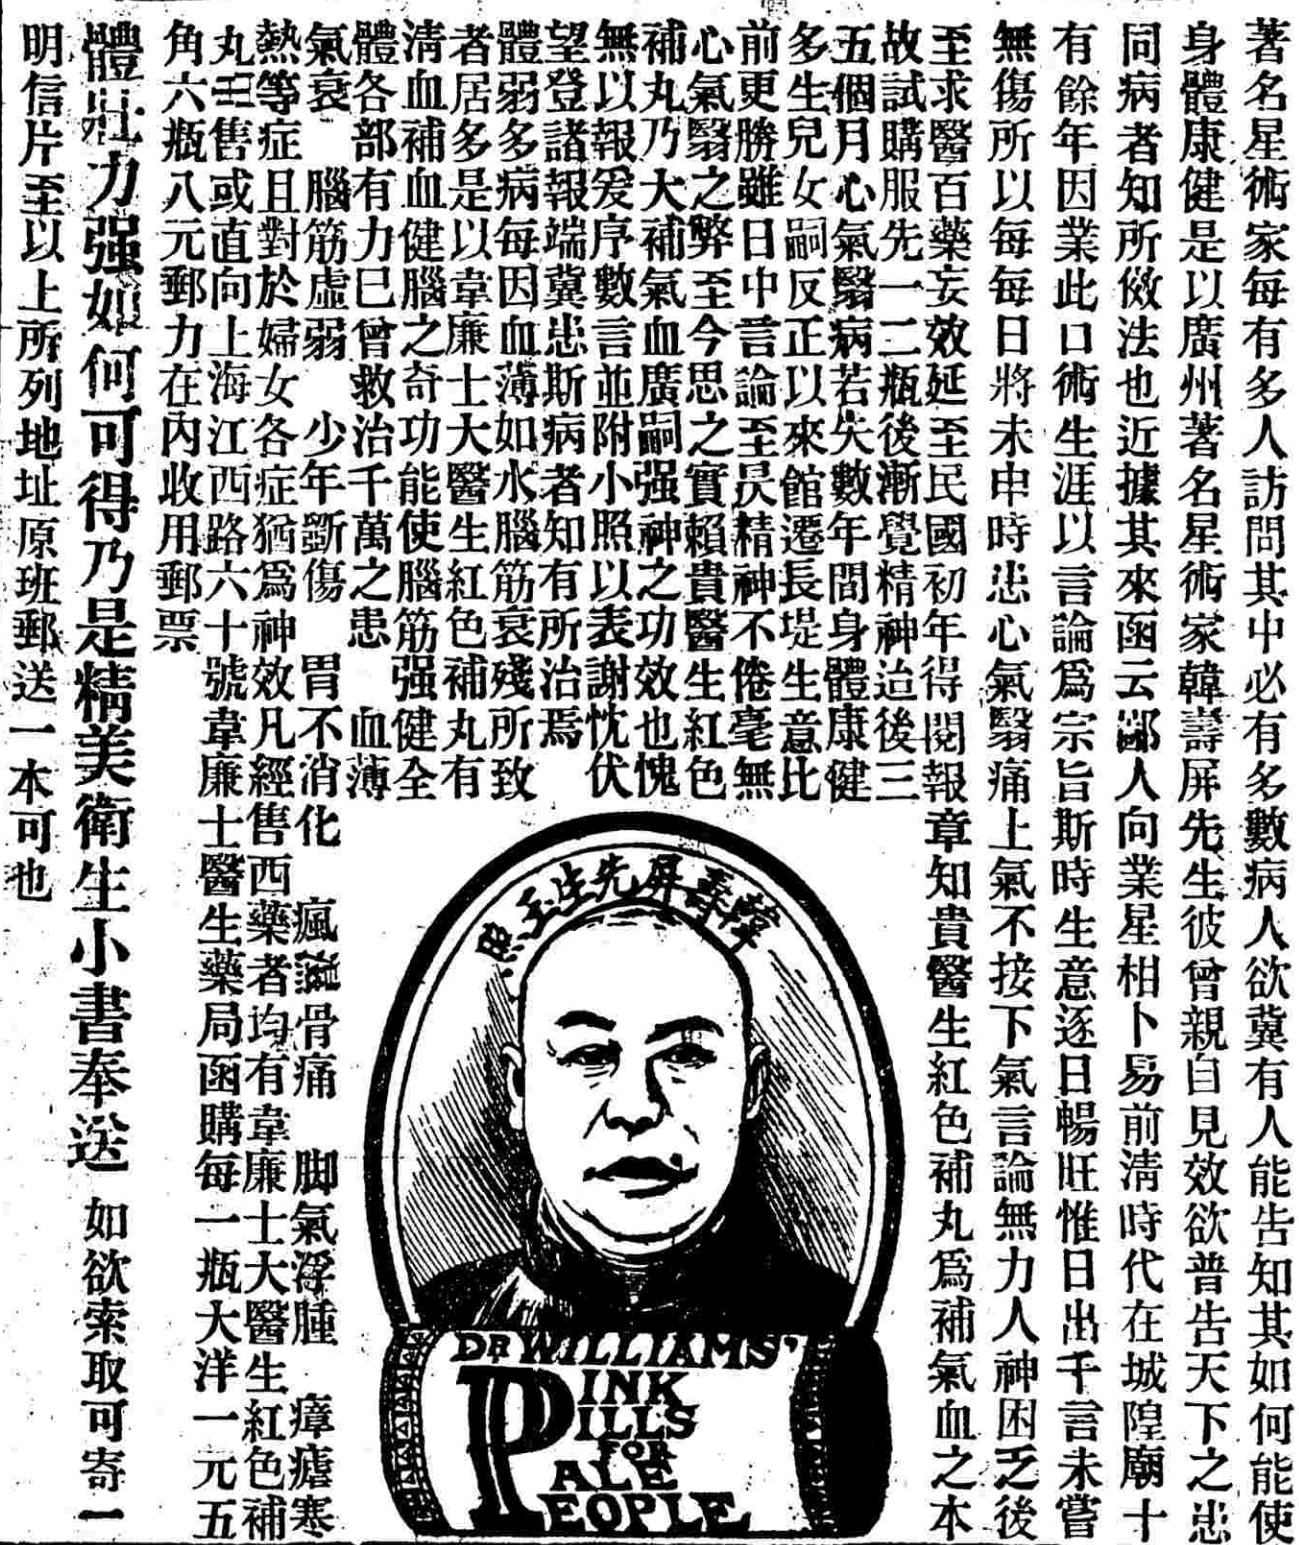 著名星術家每有多人訪問其中必有多數病人欲冀有人能告知其如何能使
身體康健是以廣州著名星術家韓壽屏先生彼曾親自見效欲普告天下之患
同病者知所傚法也近據其來函云鄙人向業星相卜易前淸時代在城隍廟十
有餘年因業此口術生涯以言論爲宗旨斯時生意逐日暢旺惟日出千言未嘗
無傷所以每每日將未申時患心氣翳痛上氣不接下氣言論無力人神困乏後
至求醫百藥妄效延至民國初年得閱報章知貴醫生紅色補丸爲補氣血之本
故試購服先一二瓶後漸覺精神迨後三
五個月心氣翳病若失數年間身體康健
多生兒女嗣反正以來館遷長堤生意比
前更勝雖日中言論至昃精神不倦毫無
心氣翳之弊至今思之實賴貴醫生紅色
補丸乃大補氣血廣嗣强神之功效也愧
無以報爰序數言並附小照以表謝忱伏
望登諸報端冀患斯病者知有所治焉
體弱多病每因血薄如水腦筋衰殘所致
者居多是以韋廉士大醫生紅色補丸有
淸血補血健腦之奇功能使腦筋强健全
體各部有力巳曾救治千萬之患 血薄
氣衰 腦筋虛弱 少年斲傷 胃不消化 瘋濕骨痛 脚氣浮腫 瘴瘧寒
熱等症且對於婦女各症猶爲神效凡經售西藥者均有韋廉士大醫生紅色補
丸出售或直向上海江西路六十號韋廉士醫生藥局函購每一瓶大洋一元五
角六瓶八元郵力在內收用郵票
體壯力强如何可得乃是精美衛生小書奉送 如欲索取可寄一
明信片至以上所列地址原班郵送一本可也
韓壽屏先生玉照
DR WILLIAMS'
PINK
PILLS
FOR
PALE
PEOPLE